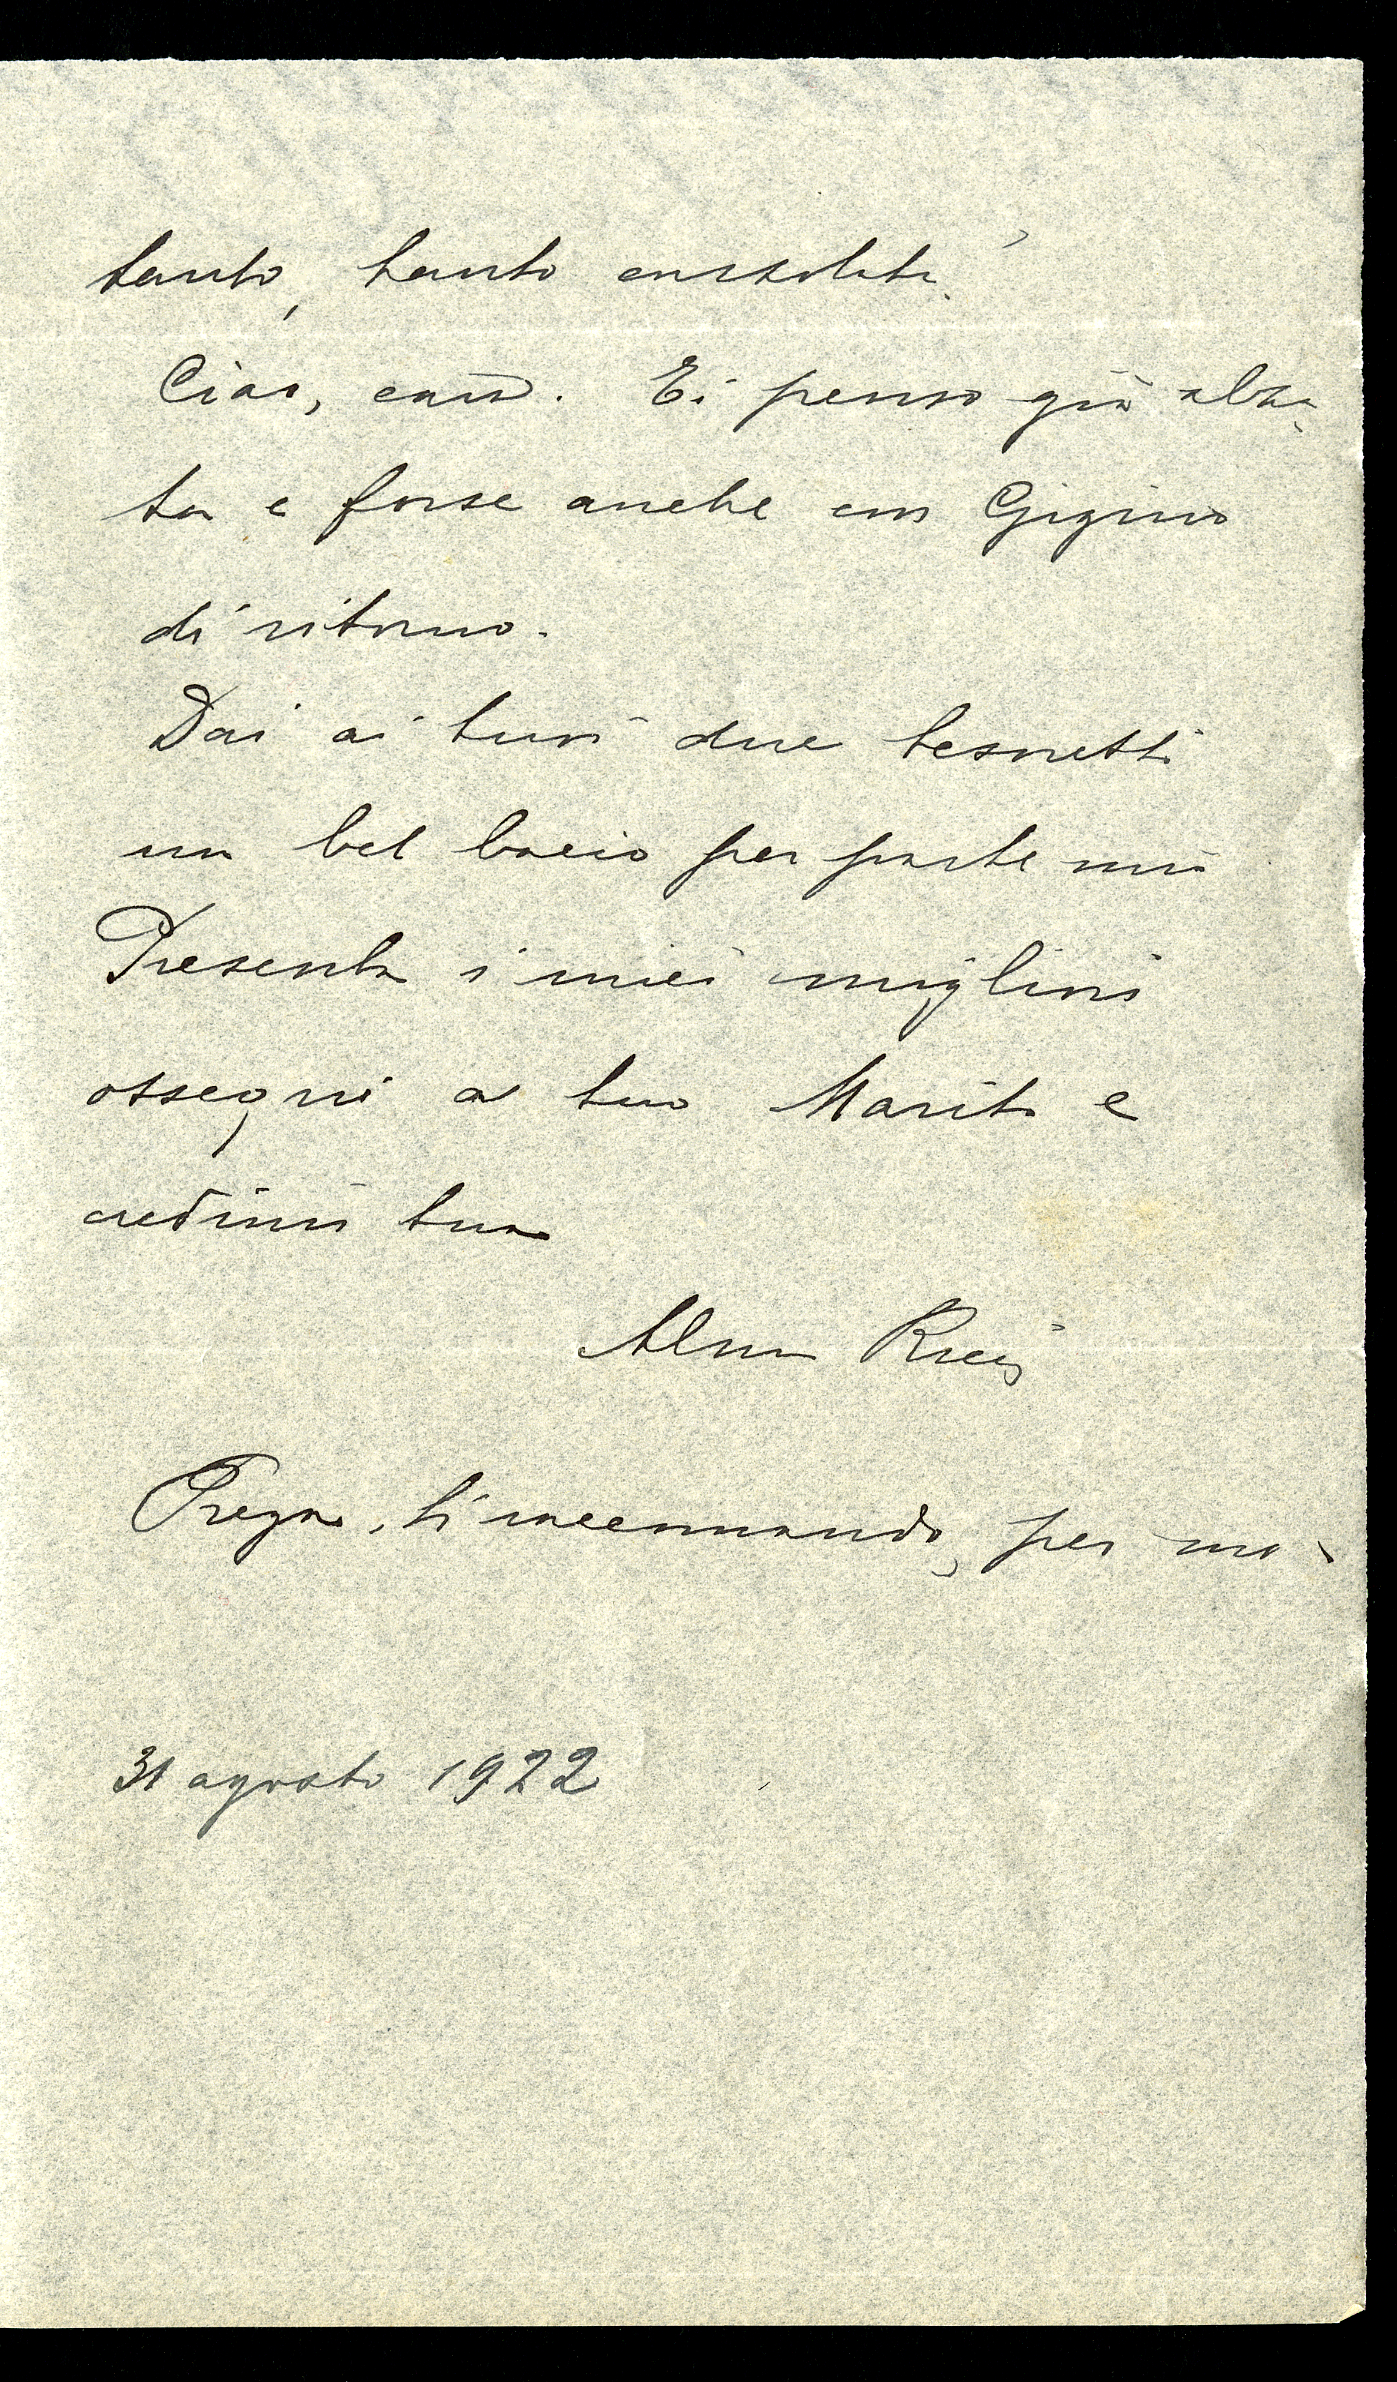 tanto, tanto consolata.
Ciao, cara. Ti penso già alza-
ta e forse anche con Gigino
di ritorno.
Dai ai tuoi due tesoretti
un bel bacio per parte mia
Presenta i miei migliori
ossequi a tuo Marito e
credimi tua
Alma Ricci
Prega, ti raccomando, per me.
31 agosto 1922